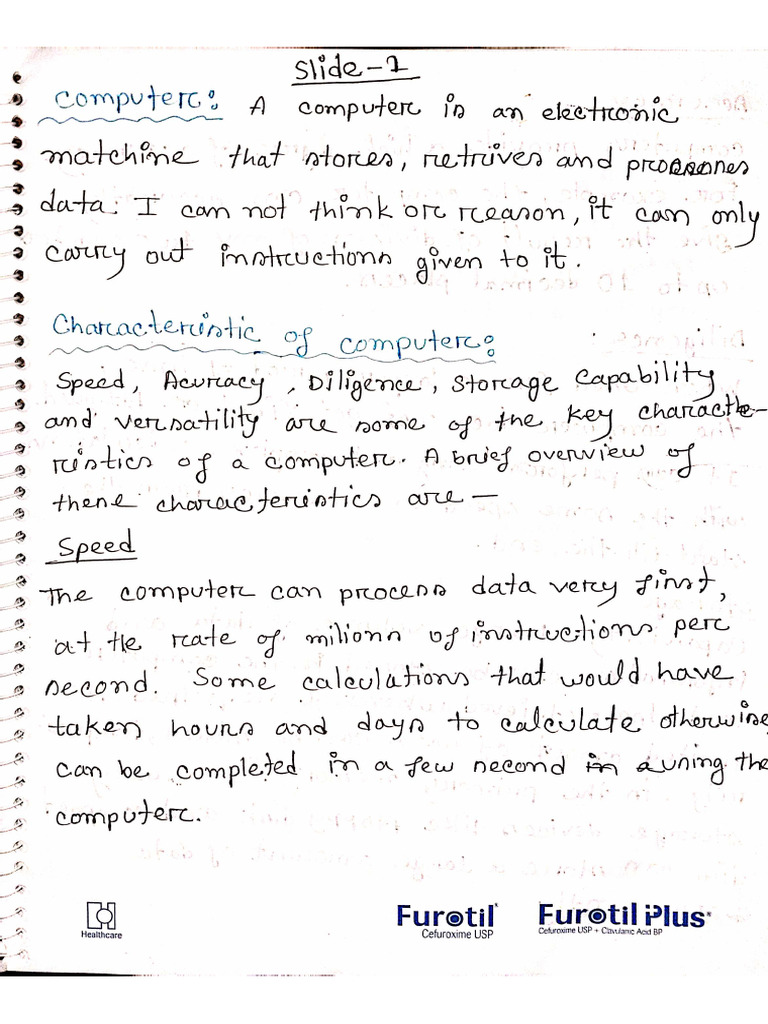 Slide-1
Computer: A computer is an electronic
matchine that stores, retrives and processes
data. I can not think or reason, it can only
carry out instructions given to it.
Characteristic of computer:
Speed, Acuracy, Diligence, Storage Capability
and versatility are some of the key characte-
ristics of a computer. A brief overview of
these characteristics are —
Speed
The computer can process data very first,
at the rate of milions of instructions per
second. Some calculations that would have
taken hours and days to calculate otherwise,
can be completed in a few second in using the
computer.
Healthcare
Furotil
Cefuroxime USP
Furotil Plus
Cefuroxime USP + Clavulanic Acid BP